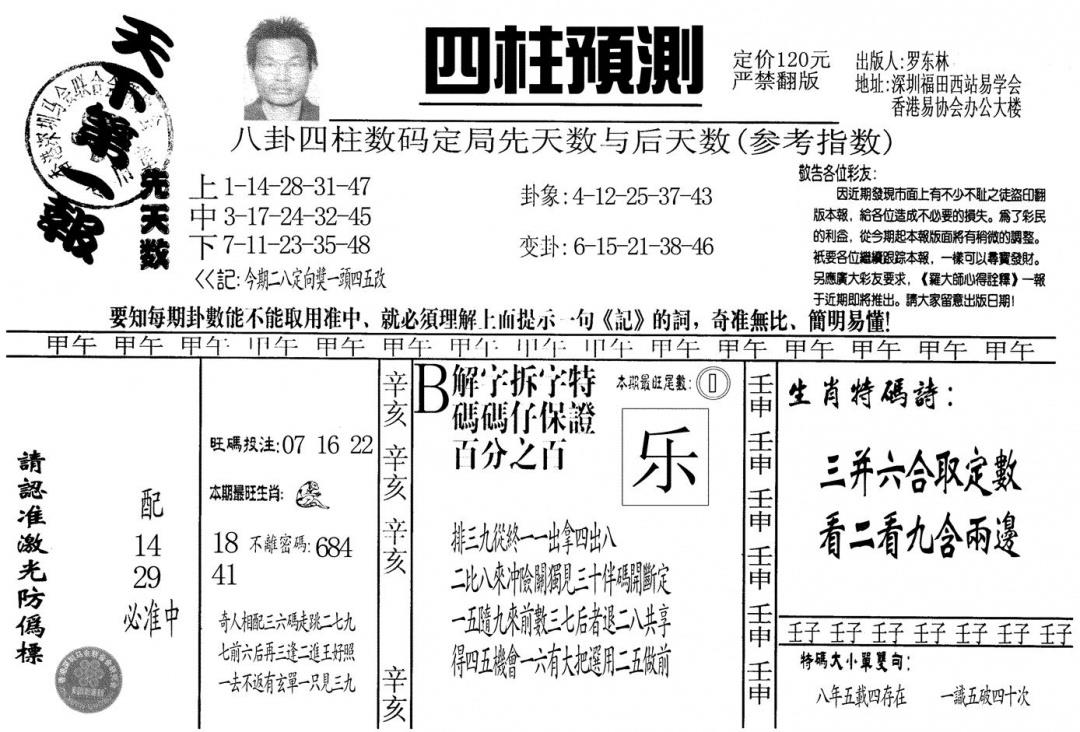 天下第一報
先天数
四柱預測
定价120元
严禁翻版
出版人:罗东林
地址:深圳福田西站易学会
香港易协会办公大楼
八卦四柱数码定局先天数与后天数(参考指数)
上 1-14-28-31-47
中 3-17-24-32-45
下 7-11-23-35-48
<<記:今期二八定向獎一頭四五改
卦象:4-12-25-37-43
变卦:6-15-21-38-46
敬告各位彩友:
因近期發現市面上有不少不耻之徒盜印翻
版本報,給各位造成不必要的損失。爲了彩民
的利益,從今期起本報版面將有稍微的調整。
衹要各位繼續跟踪本報,一樣可以尋寶發財。
另應廣大彩友要求,《羅大師心得詮釋》一報
于近期即將推出。請大家留意出版日期!
要知每期卦數能不能取用准中、就必須理解上面提示一句《記》的詞,奇准無比、簡明易懂!
甲午 甲午 甲午 甲午 甲午 甲午 甲午 甲午 甲午 甲午 甲午 甲午 甲午 甲午 甲午
請認准激光防僞標
配
14
29
必准中
旺碼投注:07 16 22
本期最旺生肖:
18 不離密碼:684
41
奇人相配三六碼走跳二七九
七前六后再三逢二進王好照
一去不返有玄單一只見三九
辛亥
辛亥
辛亥
辛亥
B
解字拆字特
碼碼仔保證
百分之百
本期最旺尾數:①
乐
排三九從終一一出拿四出八
二比八來冲險關獨見三十伴碼開斷定
一五隨九來前數三七后者退二八共享
得四五機會一六有大把選用二五做前
壬申
壬申
壬申
壬申
壬申
壬申
生肖特碼詩:
三并六合取定數
看二看九含兩邊
壬子 壬子 壬子 壬子 壬子 壬子 壬子
特碼大小單雙句:
八年五載四存在 一識五破四十次